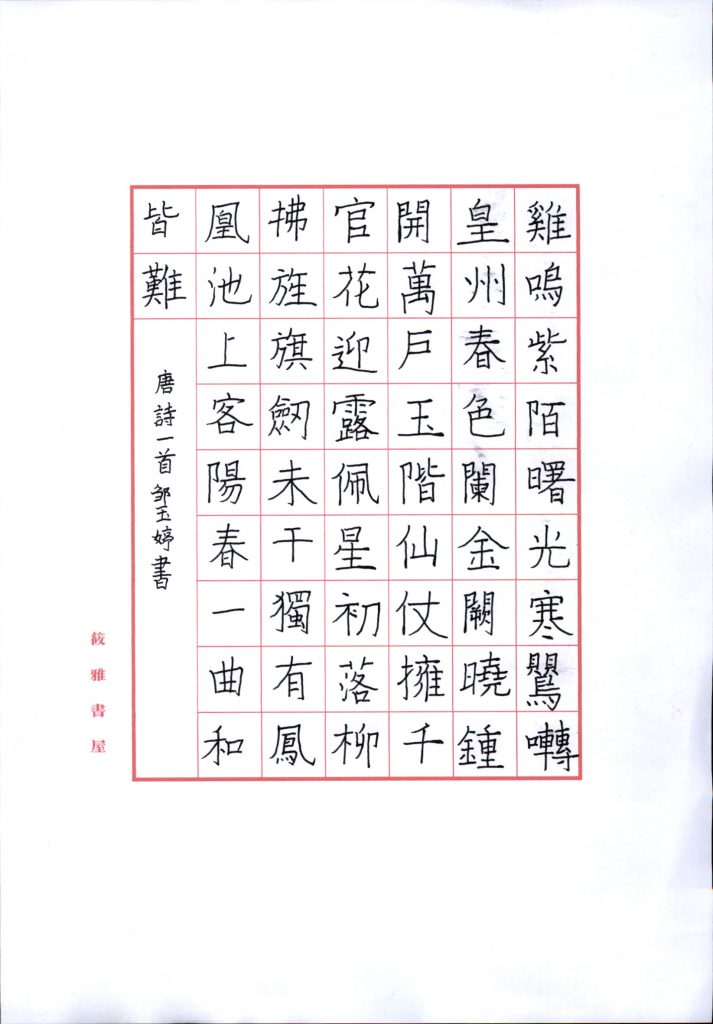 雞嗚紫陌曙光寒鸎囀
皇州春色闌金闕曉鍾
開萬戶玉階仙仗擁千
官花迎露佩星初落柳
拂旌旗劒未干獨有鳳
凰池上客陽春一曲和
皆難
唐詩一首邹玉婷書
筱雅書屋